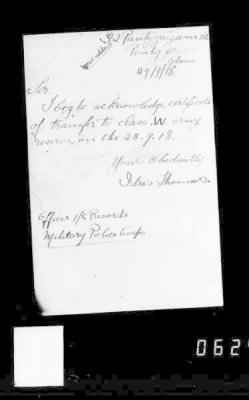 new address
27/9/18
Sir
I beg to acknowledge certificate
of transfer to class. W. army
reserve on the 28.9.18.
Your Obediently
Idris Thomas.
Officer i/c Records
Military Police Corps
062